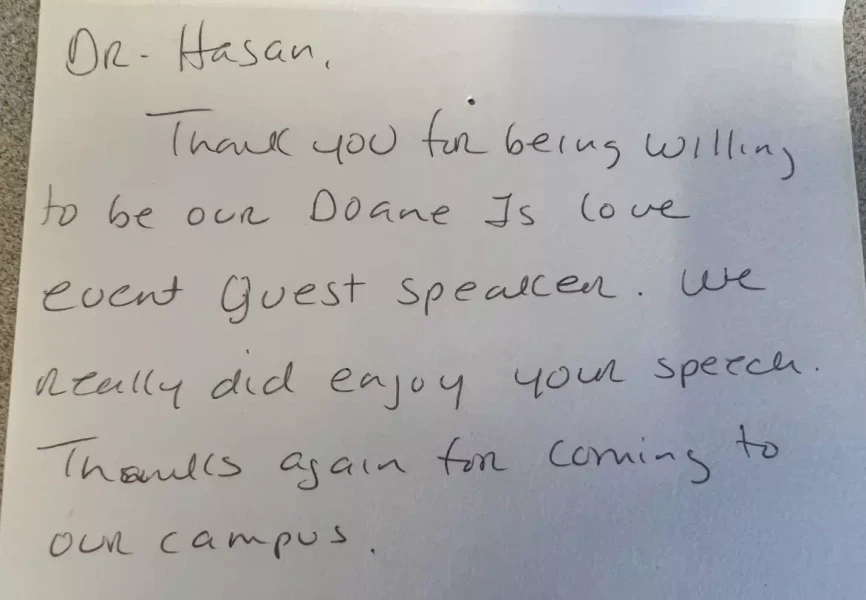 Dr- Hasan,
Thank you for being willing
to be our Doane Is love
event guest speaker. We
really did enjoy your speech.
Thanks again for coming to
our campus.